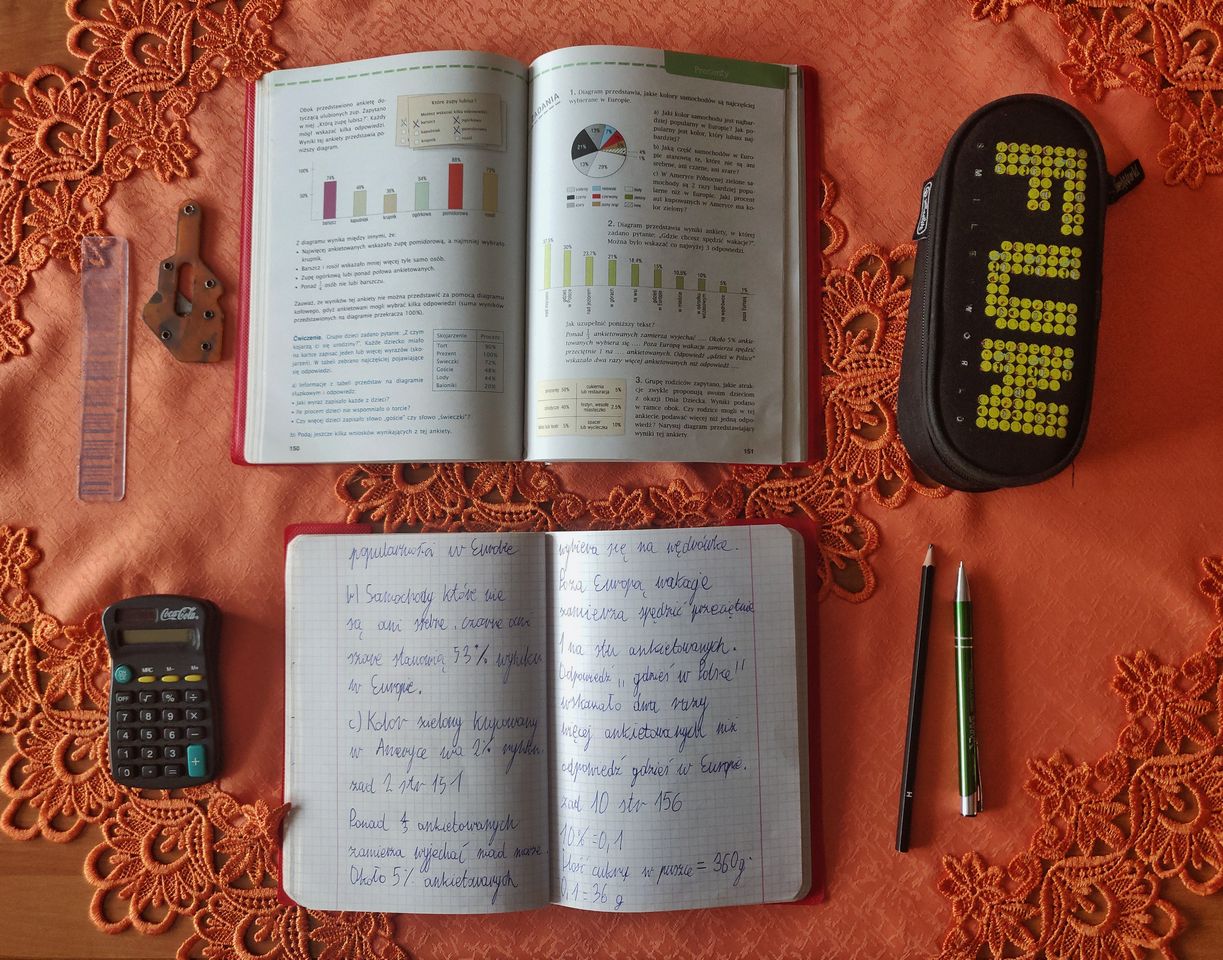 Obok przedstawiono ankietę do-
tyczącą ulubionych zup. Zapytano
w niej „Którą zupę lubisz?". Każdy
mógł wskazać kilka odpowiedzi.
Wyniki tej ankiety przedstawia po-
niższy diagram.
Które zupy lubisz?
Możesz wskazać kilka odpowiedzi.
barszcz
ogórkowa
kapuśniak
pomidorowa
krupnik
rosół
100%
50%
74%
54%
88%
barszcz
kapuśniak
krupnik
ogórkowa
pomidorowa
rosół
Z diagramu wynika między innymi, że:
• Najwięcej ankietowanych wskazało zupę pomidorową, a najmniej wybrało
krupnik.
• Barszcz i rosół wskazało mniej więcej tyle samo osób.
• Zupę ogórkową lubi ponad połowa ankietowanych.
• Ponad osób nie lubi barszczu.
Zauważ, że wyników tej ankiety nie można przedstawić za pomocą diagramu
kołowego, gdyż ankietowani mogli wybrać kilka odpowiedzi (suma wyników
przedstawionych na diagramie przekracza 100%).
Ćwiczenie. Grupie dzieci zadano pytanie: „Z czym
kojarzą ci się urodziny?". Każde dziecko miało
na kartce zapisać jeden lub więcej wyrazów (sko-
jarzeń). W tabeli zebrano najczęściej pojawiające
się odpowiedzi.
Skojarzenie Procent
Tort 90%
Prezent 100%
Świeczki 72%
Goście 48%
Lody 44%
Baloniki 20%
a) Informacje z tabeli przedstaw na diagramie
słupkowym i odpowiedz:
• Jaki wyraz zapisało każde z dzieci?
• Ile procent dzieci nie wspomniało o torcie?
• Czy więcej dzieci zapisało słowo „goście" czy słowo „świeczki"?
b) Podaj jeszcze kilka wniosków wynikających z tej ankiety.
150
Procenty
ZADANIA
1. Diagram przedstawia, jakie kolory samochodów są najczęściej
wybierane w Europie.
13%
7%
21%
4%
1%
13%
28%
srebrny
niebieski
biały
czarny
czerwony
zielony
szary
inny
a) Jaki kolor samochodu jest najbar-
dziej popularny w Europie? Jak po-
pularny jest kolor, który lubisz naj-
bardziej?
b) Jaką część samochodów w Euro-
pie stanowią te, które nie są ani
srebrne, ani czarne, ani szare?
c) W Ameryce Północnej zielone sa-
mochody są 2 razy bardziej popu-
larne niż w Europie. Jaki procent
aut kupowanych w Ameryce ma ko-
lor zielony?
2. Diagram przedstawia wyniki ankiety, w której
zadano pytanie: „Gdzie chcesz spędzić wakacje?".
Można było wskazać co najwyżej 3 odpowiedzi.
37,5%
30%
23,7%
21%
18,4%
15%
10,5%
10%
5%
1%
nad morzem
gdzieś w Polsce
nad jeziorem
w górach
na wsi
gdzieś w Europie
w mieście
w ośrodku wczasowym
na wędrówce
poza Europą
Jak uzupełnić poniższy tekst?
Ponad ⅓ ankietowanych zamierza wyjechać .... Około 5% ankie-
towanych wybiera się .... Poza Europą wakacje zamierza spędzić
przeciętnie 1 na ... ankietowanych. Odpowiedź „gdzieś w Polsce"
wskazało dwa razy więcej ankietowanych niż odpowiedź ....
prezenty 50%
cukiernia lub restauracja 5%
słodycze 40%
festyn, wesołe miasteczko 2,5%
kino lub teatr 5%
spacer lub wycieczka 10%
3. Grupę rodziców zapytano, jakie atrak-
cje zwykle proponują swoim dzieciom
z okazji Dnia Dziecka. Wyniki podano
w ramce obok. Czy rodzice mogli w tej
ankiecie podawać więcej niż jedną odpo-
wiedź? Narysuj diagram przedstawiający
wyniki tej ankiety.
151
FUN
SMILEWORLD
popularności w Europie
b) Samochody które nie
są ani srebrne, czarne ani
szare stanowią 53% wyników
w Europie.
c) Kolor zielony kupowany
w Ameryce ma 2% wyników.
zad 2 str 151
Ponad ⅓ ankietowanych
zamierza wyjechać nad morze.
Około 5% ankietowanych
wybiera się na wędrówkę.
Poza Europą wakacje
zamierza spędzić przeciętnie
1 na stu ankietowanych.
Odpowiedź „gdzieś w Polsce"
wskazało dwa razy
więcej ankietowanych niż
odpowiedź gdzieś w Europe.
zad 10 str 156
10% = 0,1
Ilość cukru w puszce = 360g
0,1 = 36 g
Coca-Cola
MRC M- M+
OFF √ % ÷
7 8 9 ×
4 5 6 −
1 2 3 +
0 · =
H